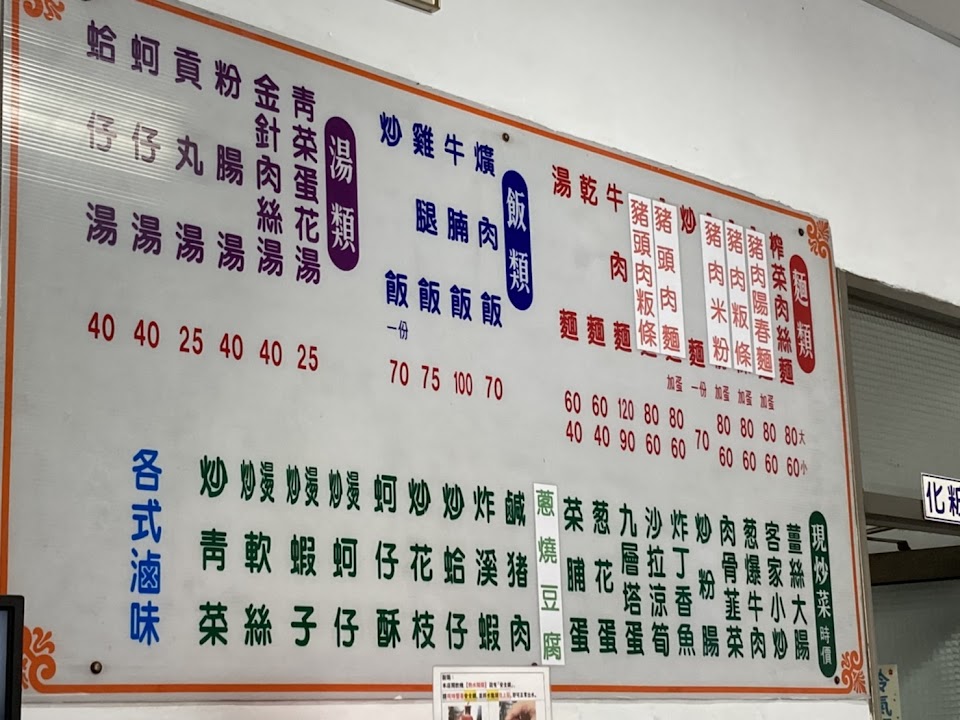 麵類
榨菜肉絲麵 80大 60小
豬肉陽春麵 加蛋 80 60
豬肉粄條 加蛋 80 60
豬肉米粉 加蛋 80 60
炒麵 一份 70
豬頭肉麵 加蛋 80 60
豬頭肉粄條 80 60
牛肉麵 120 90
乾麵 60 40
湯麵 60 40
飯類
爌肉飯 70
牛腩飯 100
雞腿飯 75
炒飯 一份 70
湯類
青菜蛋花湯 25
金針肉絲湯 40
粉腸湯 40
貢丸湯 25
蚵仔湯 40
蛤仔湯 40
現炒菜 時價
薑絲大腸
客家小炒
葱爆牛肉
肉骨韮菜
炒粉腸
炸丁香魚
沙拉涼筍
九層塔蛋
葱花蛋
菜脯蛋
蔥燒豆腐
鹹豬肉
炸溪蝦
炒蛤仔
炒花枝
蚵仔酥
炒燙蚵仔
炒燙蝦子
炒燙軟絲
炒青菜
各式滷味
化粧
冷氣